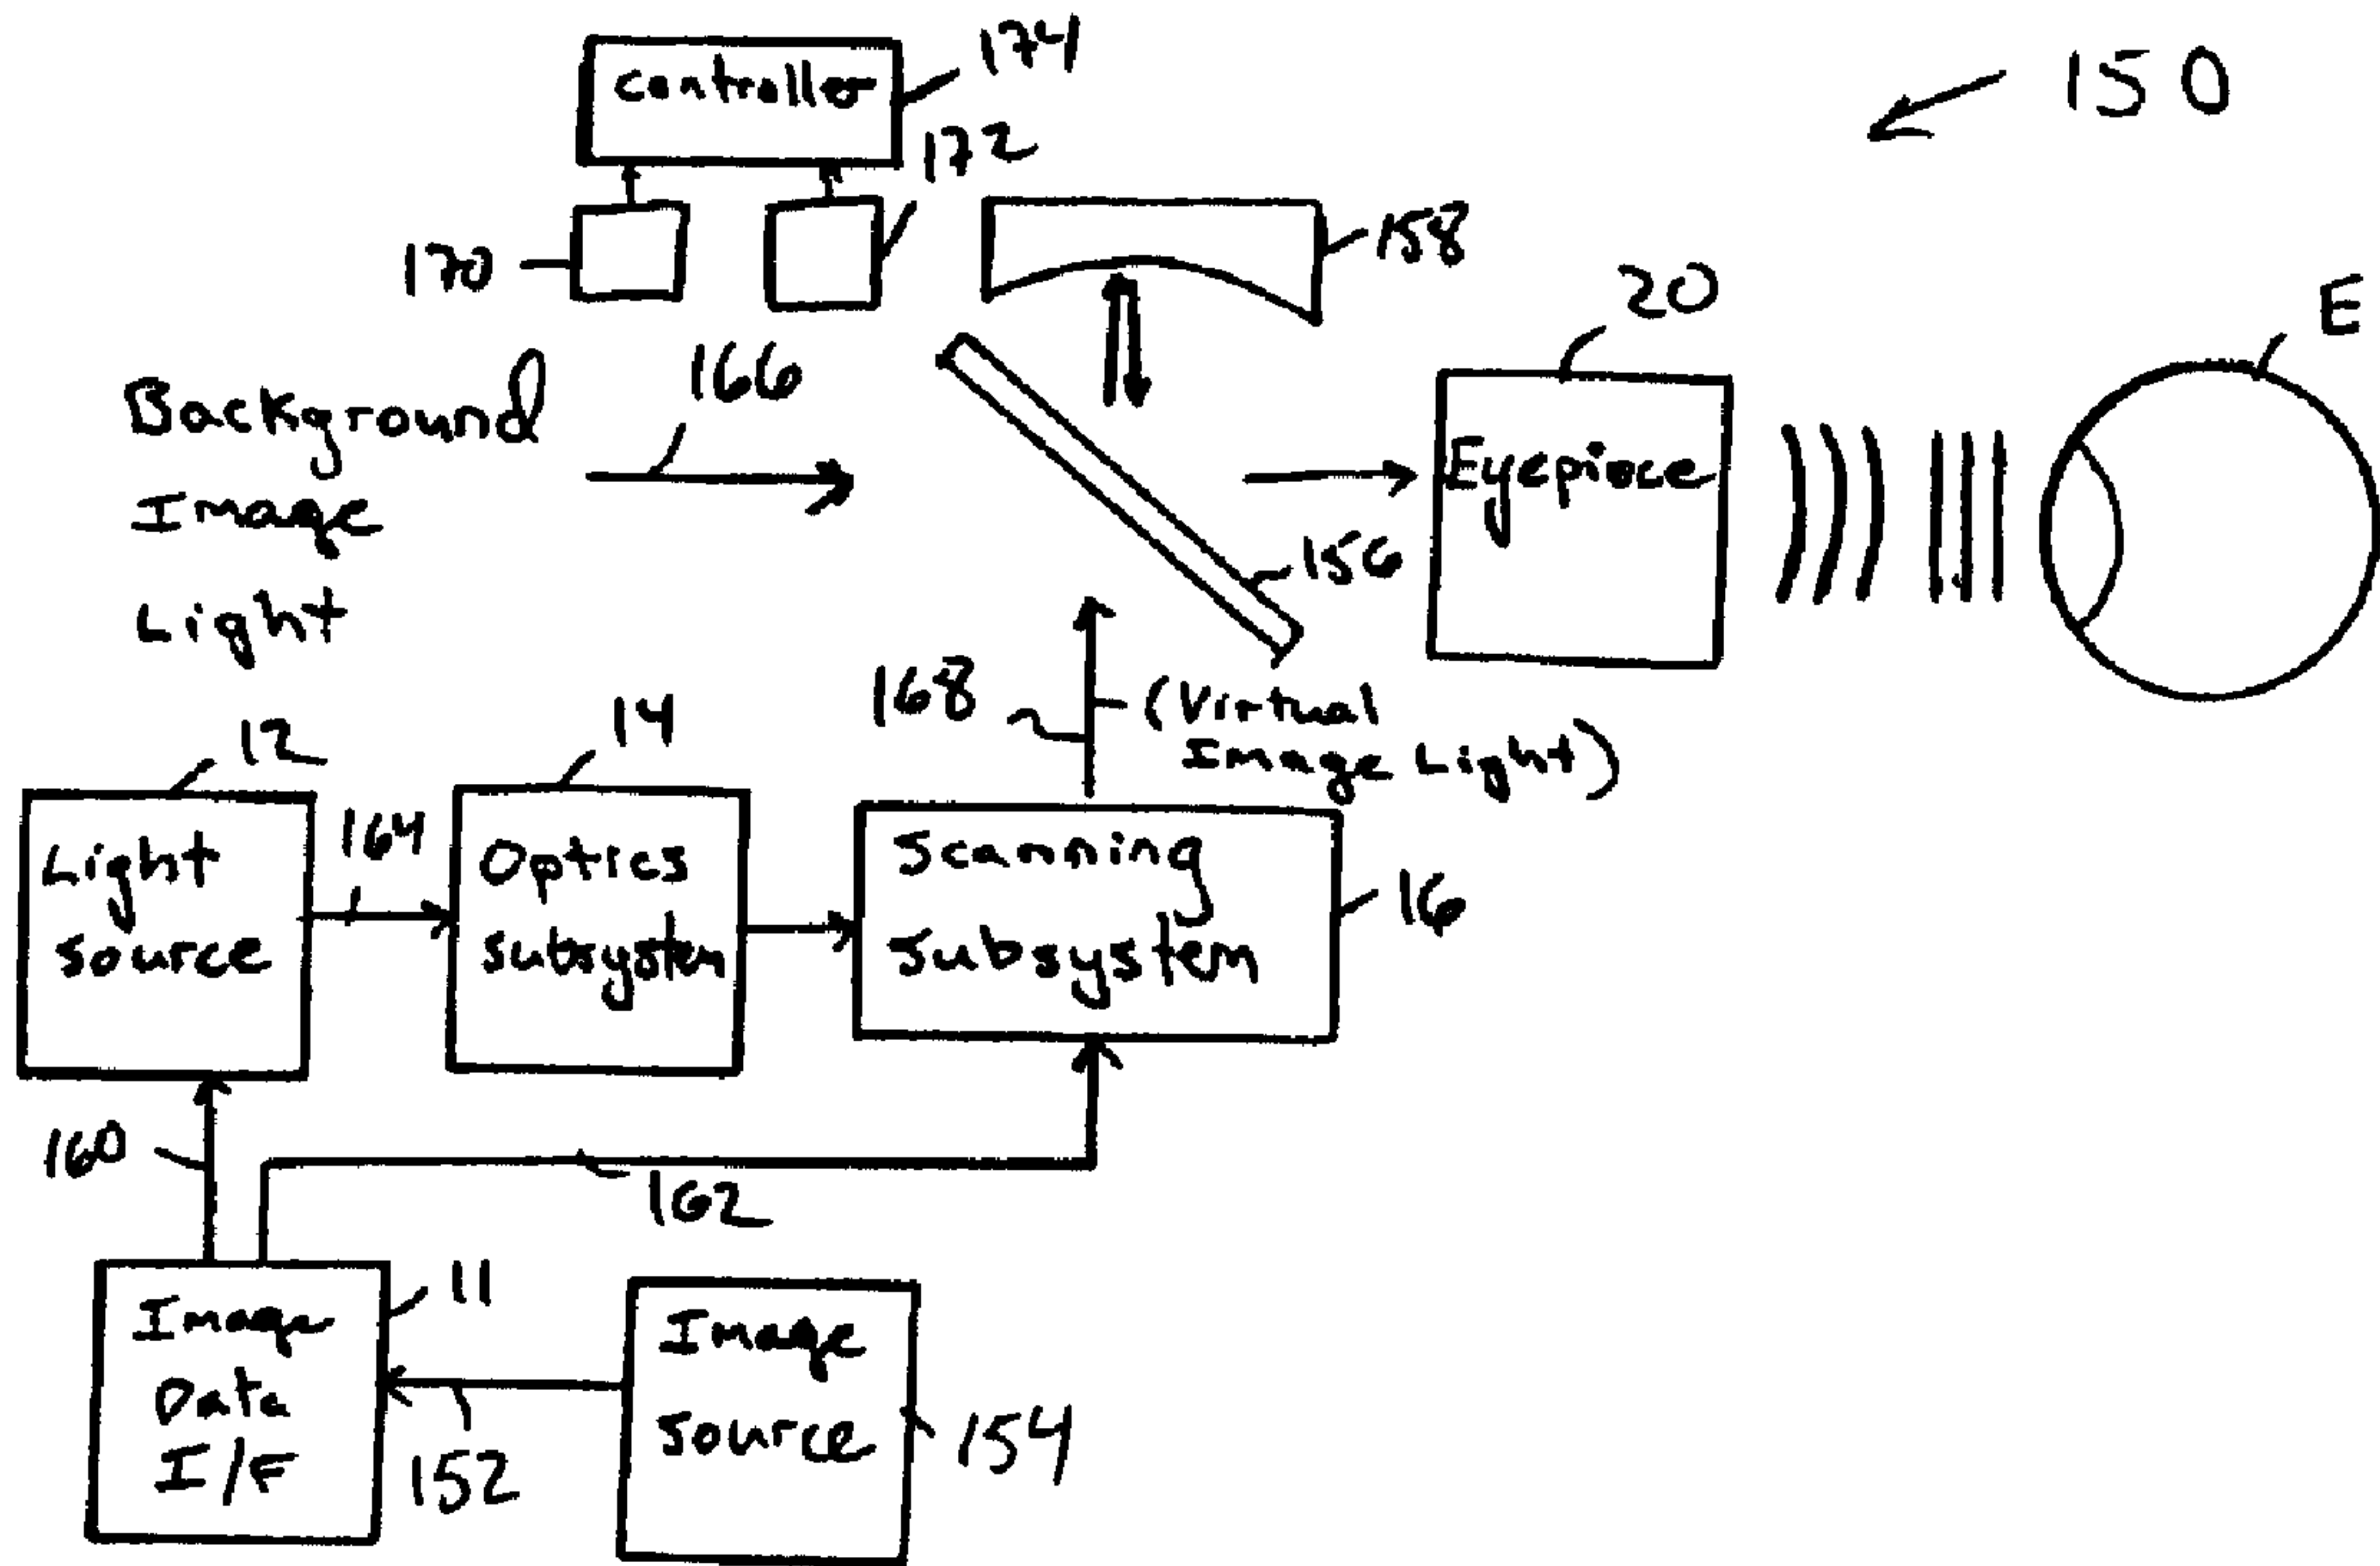 Controller
174
150
172
170
158
20
E
166
Background
Image
Light
Eyepiece
156
168
(Virtual
Image Light)
12
14
164
Light
Source
Optics
Subsystem
Scanning
Subsystem
16
160
162
11
Image
Data
I/F
152
Image
Source
154